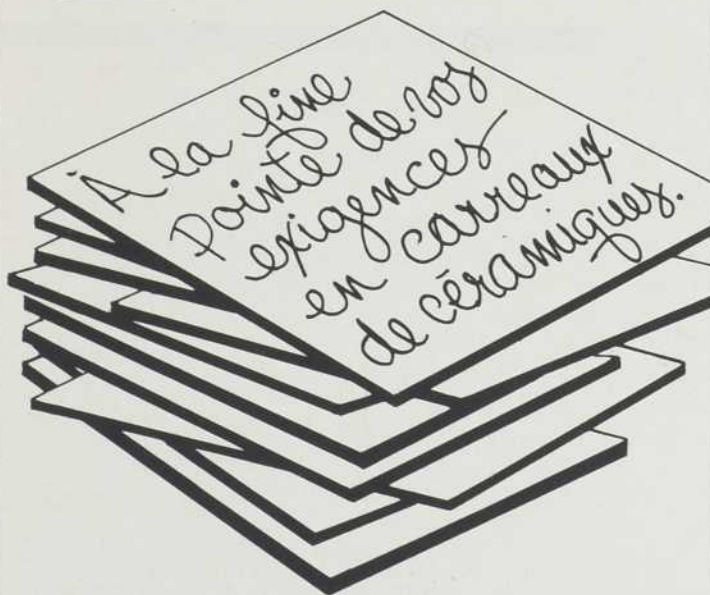 À la fine
Pointe de vos
exigences
en carreaux
de céramiques.